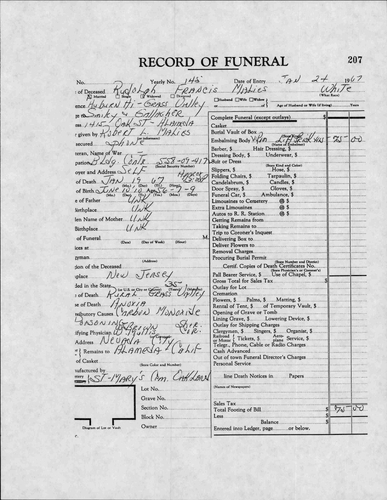 RECORD OF FUNERAL
207
No. Yearly No. 145 Date of Entry JAN 24 1967
of Deceased Rudolph Francis Mialies White
Married Single Widowed Divorced Husband Wife Widow Age of Husband or Wife (if living) Years
ence Auburn Hi-Grass Valley
Smiley & Gallagher
ss 1415 Oak St - Alameda
r given by Robert L. Mialies
secured Phone
eteran, Name of War
pation Bldg. Contr. 553-09-417
oyer and Address Self
of Death JAN 19, 67
of Birth June 10
e of Father Unk
irthplace Unk
en Name of Mother Unk
Birthplace Unk
of Funeral M.
(Date) (Day of Week) (Hour)
ces at
gyman Address
ion of the Deceased
place New Jersey
Resided in the State 35
of Death Rural Grass Valley
of Death Anoxia
ributory Causes Carbon Monoxide
Poisoning
ifying Physician
Address Nevada City
Remains to Alameda, Calif
of Casket
(State Color and Number)
nufactured by
etery St-Marys Cem. Oakland
Lot No.
Grave No.
Section No.
Block No.
Diagram of Lot or Vault
Owner
Complete Funeral (except outlays) $
Casket
Burial Vault or Box
Embalming Body 75-00
(Name of Embalmer)
Barber, $ Hair Dressing, $
Dressing Body, $ Underwear, $
(State Kind and Color)
Slippers, $ Hose, $
Folding Chairs, $ Tarpaulin, $
Candelabrum, $ Candles, $
Door Spray, $ Gloves, $
Funeral Car, $ Ambulance, $
Limousines to Cemetery @ $
Extra Limousines @ $
Autos to R. R. Station @ $
Getting Remains from
Taking Remains to
Trip to Coroner's Inquest
Delivering Box to
Deliver Flowers to
Removal Charges
Procuring Burial Permit
(State Number and Doctor)
Certif. Copies of Death Certificates No.
(State Physician's or Coroner's)
Pall Bearer Service, $ Use of Chapel, $
Gross Total for Sales Tax $
Outlay for Lot
Cremation
Flowers, $ Palms, $ Matting, $
Rental of Tent, $ of Temporary Vault, $
Opening of Grave or Tomb
Lining Grave, $ Lowering Device, $
Outlay for Shipping Charges
Clergyman, $ Singers, $ Organist, $
Railroad or Motor Tickets, $ Aero-plane Service, $
Telegr., Phone, Cable or Radio Charges
Cash Advanced
Out of town Funeral Director's Charges
Personal Service
line Death Notices in Papers
(Names of Newspapers)
Sales Tax
Total Footing of Bill $ 75-00
Less
Balance $
Entered into Ledger, page or below.